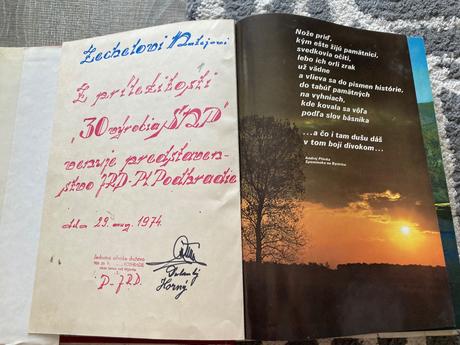 Zechelovi Matejovi
Z príležitosti
"30 výročia SNP"
venuje predstaven-
stvo JRD-Pl Podhradie
dňa 29. aug. 1974.
Jednotné roľnícke družstvo
P-JRD.
Horný
Nože príď,
kým ešte žijú pamätníci,
svedkovia očití,
lebo ich orlí zrak
už vädne
a vlieva sa do písmen histórie,
do tabúľ pamätných
na vyhniach,
kde kovala sa vôľa
podľa slov básnika
...a čo i tam dušu dáš
v tom boji divokom...
Andrej Plávka
Spomienka na Bystricu